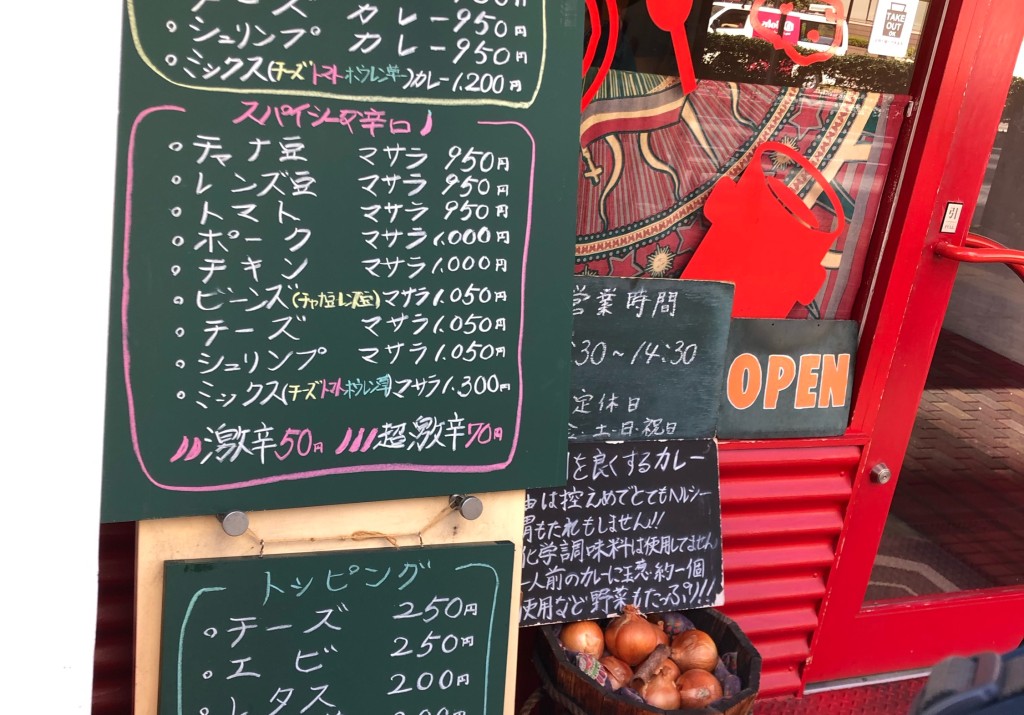 カレー 950円
シュリンプ カレー 950円
ミックス(チーズトマトホウレン草)カレー 1.200円
スパイシーで辛口
チャナ豆 マサラ 950円
レンズ豆 マサラ 950円
トマト マサラ 950円
ポーク マサラ 1.000円
チキン マサラ 1.000円
ビーンズ(チャナ豆レンズ豆) マサラ 1.050円
チーズ マサラ 1.050円
シュリンプ マサラ 1.050円
ミックス(チーズトマトホウレン草)マサラ 1.300円
激辛50円 超激辛70円
トッピング
チーズ 250円
エビ 250円
レタス 200円
営業時間
:30~14:30
定休日
土・日・祝日
を良くするカレー
は控えめでとてもヘルシー
胃もたれもしません!!
化学調味料は使用してません
一人前のカレーに玉葱・約一個
使用など野菜もたっぷり!!
OPEN
TAKE
OUT
OK
引